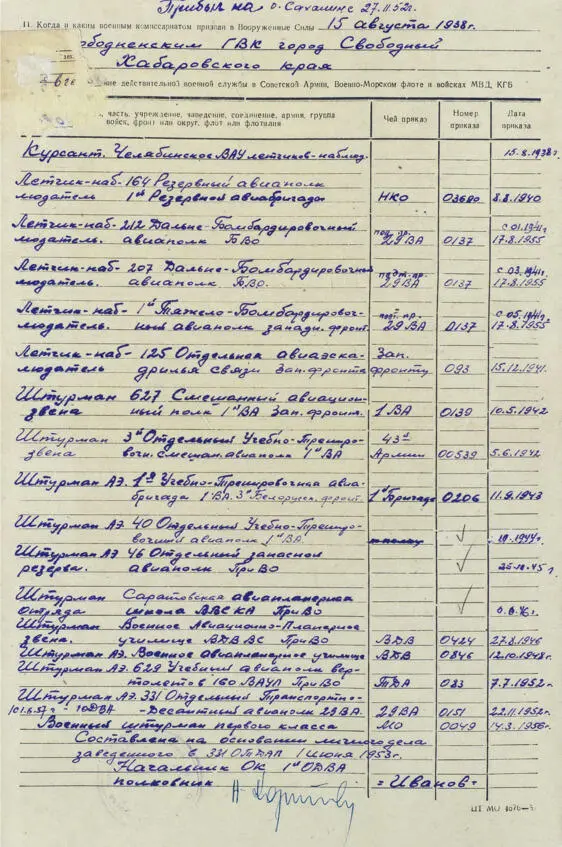 Прибыл на о. Сахалинс 27.11.52г.
11. Когда и каким военным комиссариатом призван в Вооруженные Силы 15 августа 1938г.
ободненским ГВК город Свободный
Хабаровского края
ние действительной военной службы в Советской Армии, Военно-Морском флоте и войсках МВД, КГБ
, часть, учреждение, заведение, соединение, армия, группа войск, фронт или округ, флот или флотилия Чей приказ Номер приказа Дата приказа
Курсант. Челябинское ВАУ летчиков-наблюд. 15.8.1938г
Летчик-наб- 164 Резервный авиаполк
людатель 1й Резервной авиабригады НКО 03680 8.8.1940
Летчик-наб- 212 Дальне-Бомбардировочный с 01.1941г
людатель. авиаполк БВО 29 ВА 0137 17.8.1955
Летчик-наб- 207 Дальне-Бомбардировочный с 03.1941г.
людатель. авиаполк БВО. 29 ВА 0137 17.8.1955
Летчик-наб- 1й Тяжело-Бомбардировоч- с 05.1941г
людатель. ный авиаполк западн. фронт. 29 ВА 0137 17.8.1955
Летчик-наб- 125 Отдельная авиаэска- Зап.
людатель дрилья связи Зап. фронта фронту 093 15.12.1941.
Штурман 627 Смешанный авиацион-
звена ный полк 1й ВА Зап. фронт. 1 ВА 0139 10.5.1942
Штурман 3й Отдельный Учебно-Трениро- 43й
звена вочн. смешан. авиаполк 1й ВА Армии 00539 5.6.1942
Штурман АЭ. 1я Учебно-Тренировочная авиа-
бригада 1 ВА. 3й Белорусск. фронт. 1й Бригаде 0206 11.9.1943
Штурман АЭ. 40 Отдельный Учебно-Трениро-
вочный авиаполк 1й ВА. 1944г.
Штурман АЭ 46 Отдельный запасной
резерва. авиаполк ПриВО 10.45г
Штурман Саратовская авиапланерная
отряда школа ВВС КА ПриВО
Штурман Военное Авиационно-Планерное
звена. училище ВДВ ВС ПриВО ВДВ 0424 27.8.1946
Штурман АЭ. Военное авиапланерное училище ВДВ 0846 12.10.1948г.
Штурман АЭ. 629 Учебный авиаполк вер-
толетов 160 ВАУЛ ПриВО ТДА 083 7.7.1952г.
Штурман АЭ. 331 Отдельный Транспортно-
- Десантный авиаполк 29 ВА. 29 ВА 0151 22.11.1952г.
Военный штурман первого класса МО 0049 14.3.1956г.
Составлена на основании личного дела
заведенного в 331 ОТДАП 1 июня 1953г.
Начальник ОК 1й ОДВА
полковник = Иванов =